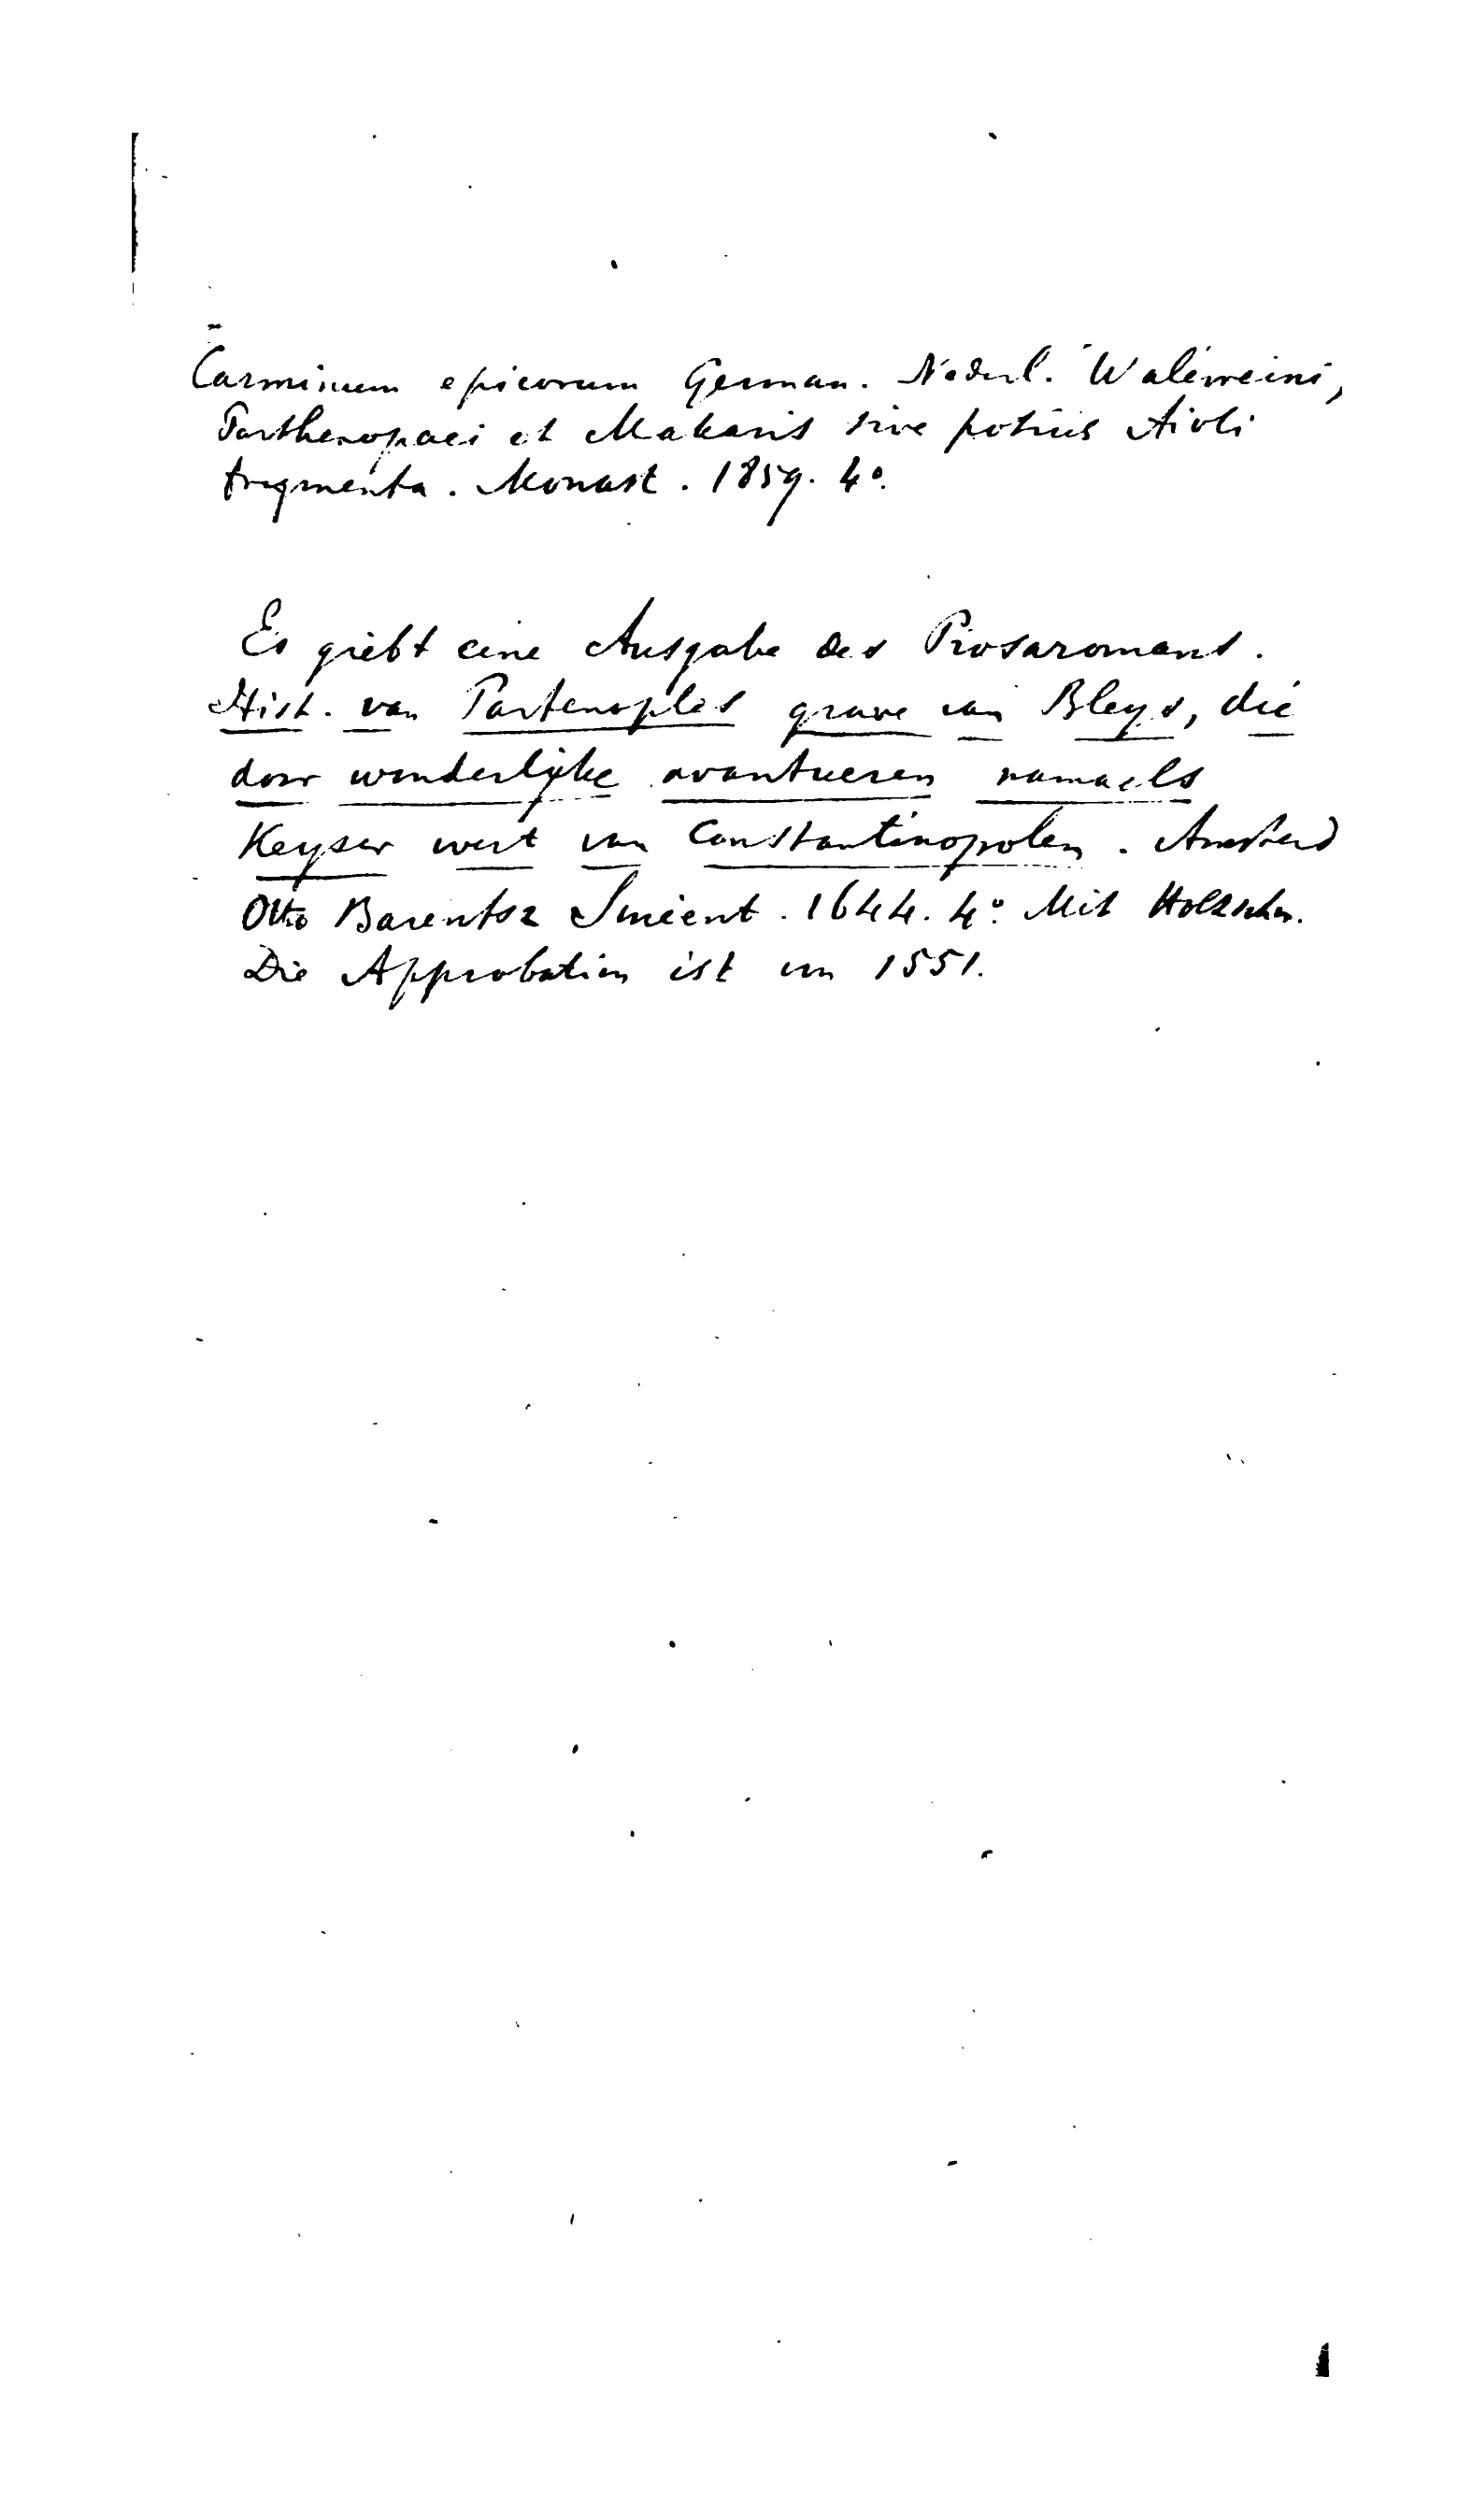 Carminum epicorum German. Nederl. Waleweini,
Parthenopaei et Makaris sive potius Aioli
fragmenta. Monast. 1859. 4º.
Es giebt eine Ausgabe des Prosaromans.
Hist. van Partenoples grave van Bleys, die
door wonderlijke avantueren namaels
Keyser wert van Constantinopolen. Amsterd
Otto Barentsz Smient. 1644. 4º. Mit Holzschn.
Die Approbation ist von 1551.